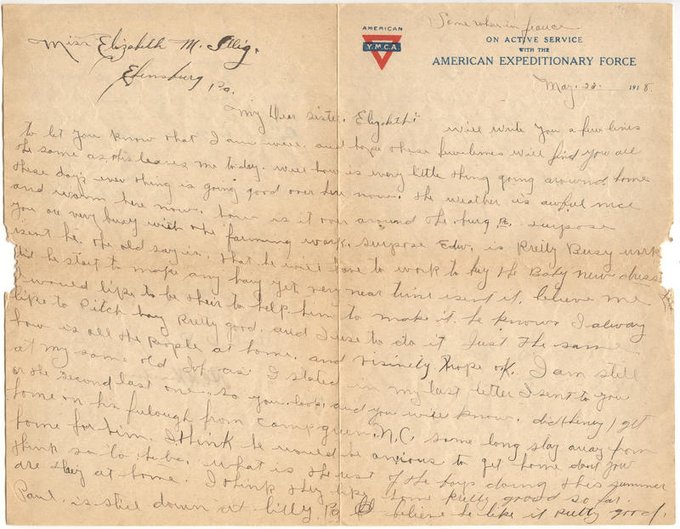 Somewhere in France
AMERICAN
Y.M.C.A.
ON ACTIVE SERVICE
WITH THE
AMERICAN EXPEDITIONARY FORCE
Miss Elizabeth M. Illig.
Ebensburg
Pa.
May. 23. 1918.
My Dear sister. Elizabeth:
will write you a few lines
to let you know what I am well. and hope these few lines will find you all
the same as this leaves me today. well how is every little thing going around home
these days ever thing is going good over here now. the weather is awful nice
and warm here now. how is it over around the burg Pa. suppose
you are very busy with the farming work. suppose Edw. is Pretty Busy
isent he. the old say is. that he will have to work to buy the Baby new dress
did he start to make any hay yet very near time isent it. believe me
I would like to be their to help him to make it. he knows I alway
like to Pitch hay Pretty good. and I use to do it Just the same
how is all the People at home. and hope ok. I am still
at my same old as I stated in my last letter I sent to you
or the second last one. so you look and you will know. did get
home on his fulough from camp green. N.C. some long stay away from
home for him. I think he would be anxious to get home dont you
think so to be. what is the rest of the boys doing this summer
are they at home. I think they like home Pretty good so far.
Paul. is still down at Pa. believe he like it Pretty good.